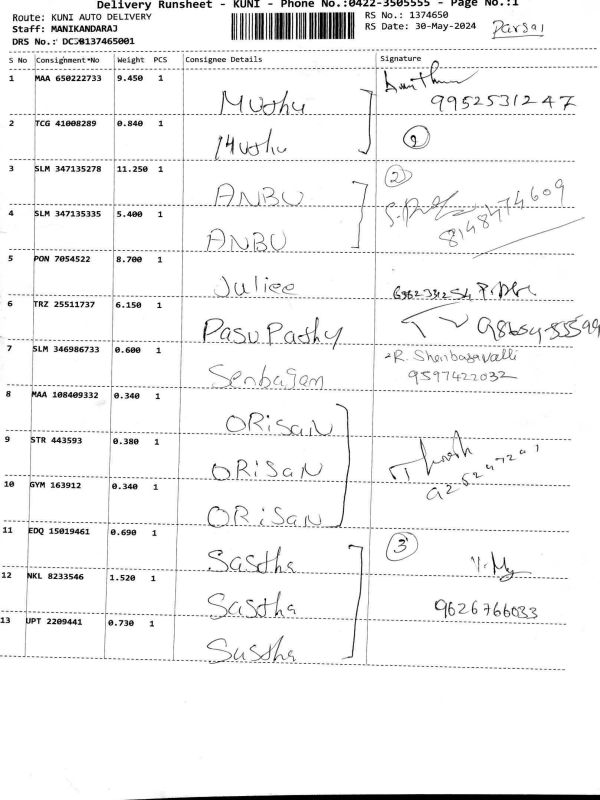 Delivery Runsheet - KUNI - Phone No.:0422-3505555 - Page No.:1
Route: KUNI AUTO DELIVERY
RS No.: 1374650
Staff: MANIKANDARAJ
RS Date: 30-May-2024
DRS No.: DC30137465001
S No Consignment No Weight PCS Consignee Details Signature
1 MAA 650222733 9.450 1 Muthu 9952531247
2 TCG 41008289 0.840 1 Muthu 2
3 SLM 347135278 11.250 1 ANBU 2
4 SLM 347135335 5.400 1 ANBU 8148474609
5 PON 7054522 8.700 1 Juliee
6 TRZ 25511737 6.150 1 Pasu Pathy
7 SLM 346986733 0.600 1 Senbagam R. Shenbagavalli
9597422032
8 MAA 108409332 0.340 1 ORiSaN
9 STR 443593 0.380 1 ORiSaN
10 GYM 163912 0.340 1 ORiSaN
11 EDQ 15019461 0.690 1 Sastha 3
12 NKL 8233546 1.520 1 Sastha 9626766033
13 UPT 2209441 0.730 1 Sastha